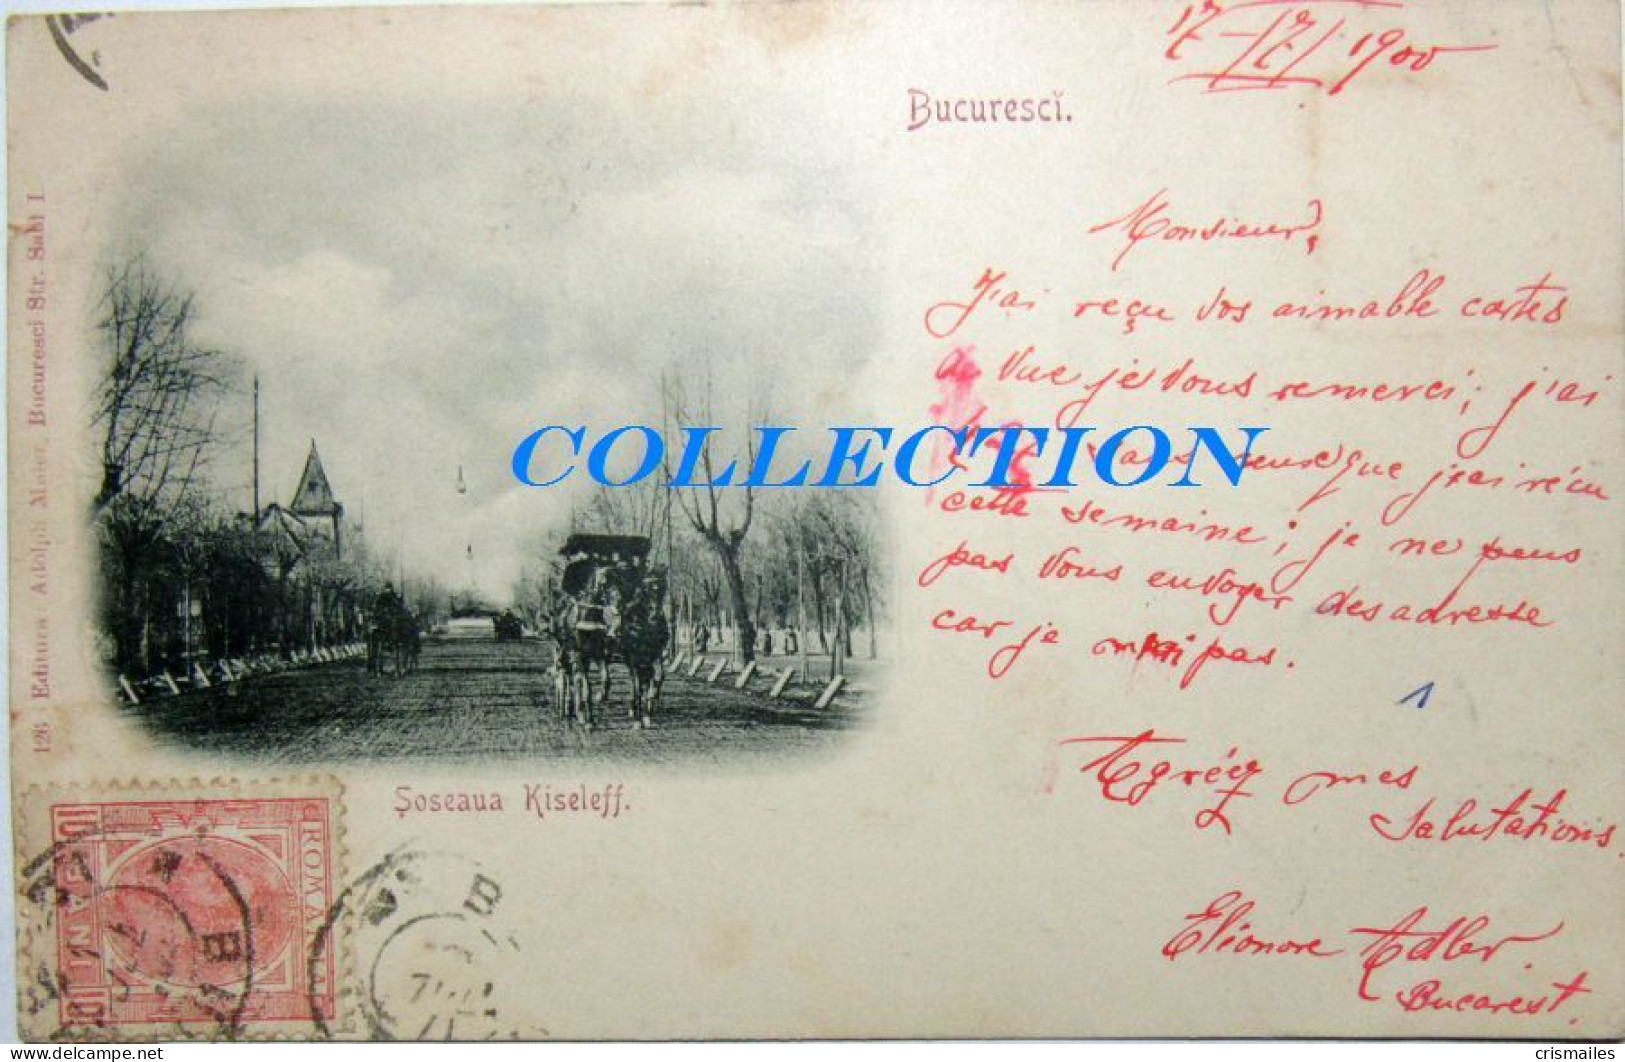 17-/7/1900
Bucurescĭ.
Monsieur,
J'ai reçu vos aimable cartes
de vue je vous remerci; j'ai
que j'ai récu
cette semaine; je ne peus
pas vous envoyer des adresse
car je n'ai pas.
1
Agréez mes
Salutations.
Elionore Adler.
Bucarest.
COLLECTION
126 Editura Adolph Maier, Bucuresci Str. Sabi I
Șoseaua Kiseleff.
ROMANIA
10 BANI 10
crismailes
delcampe.net